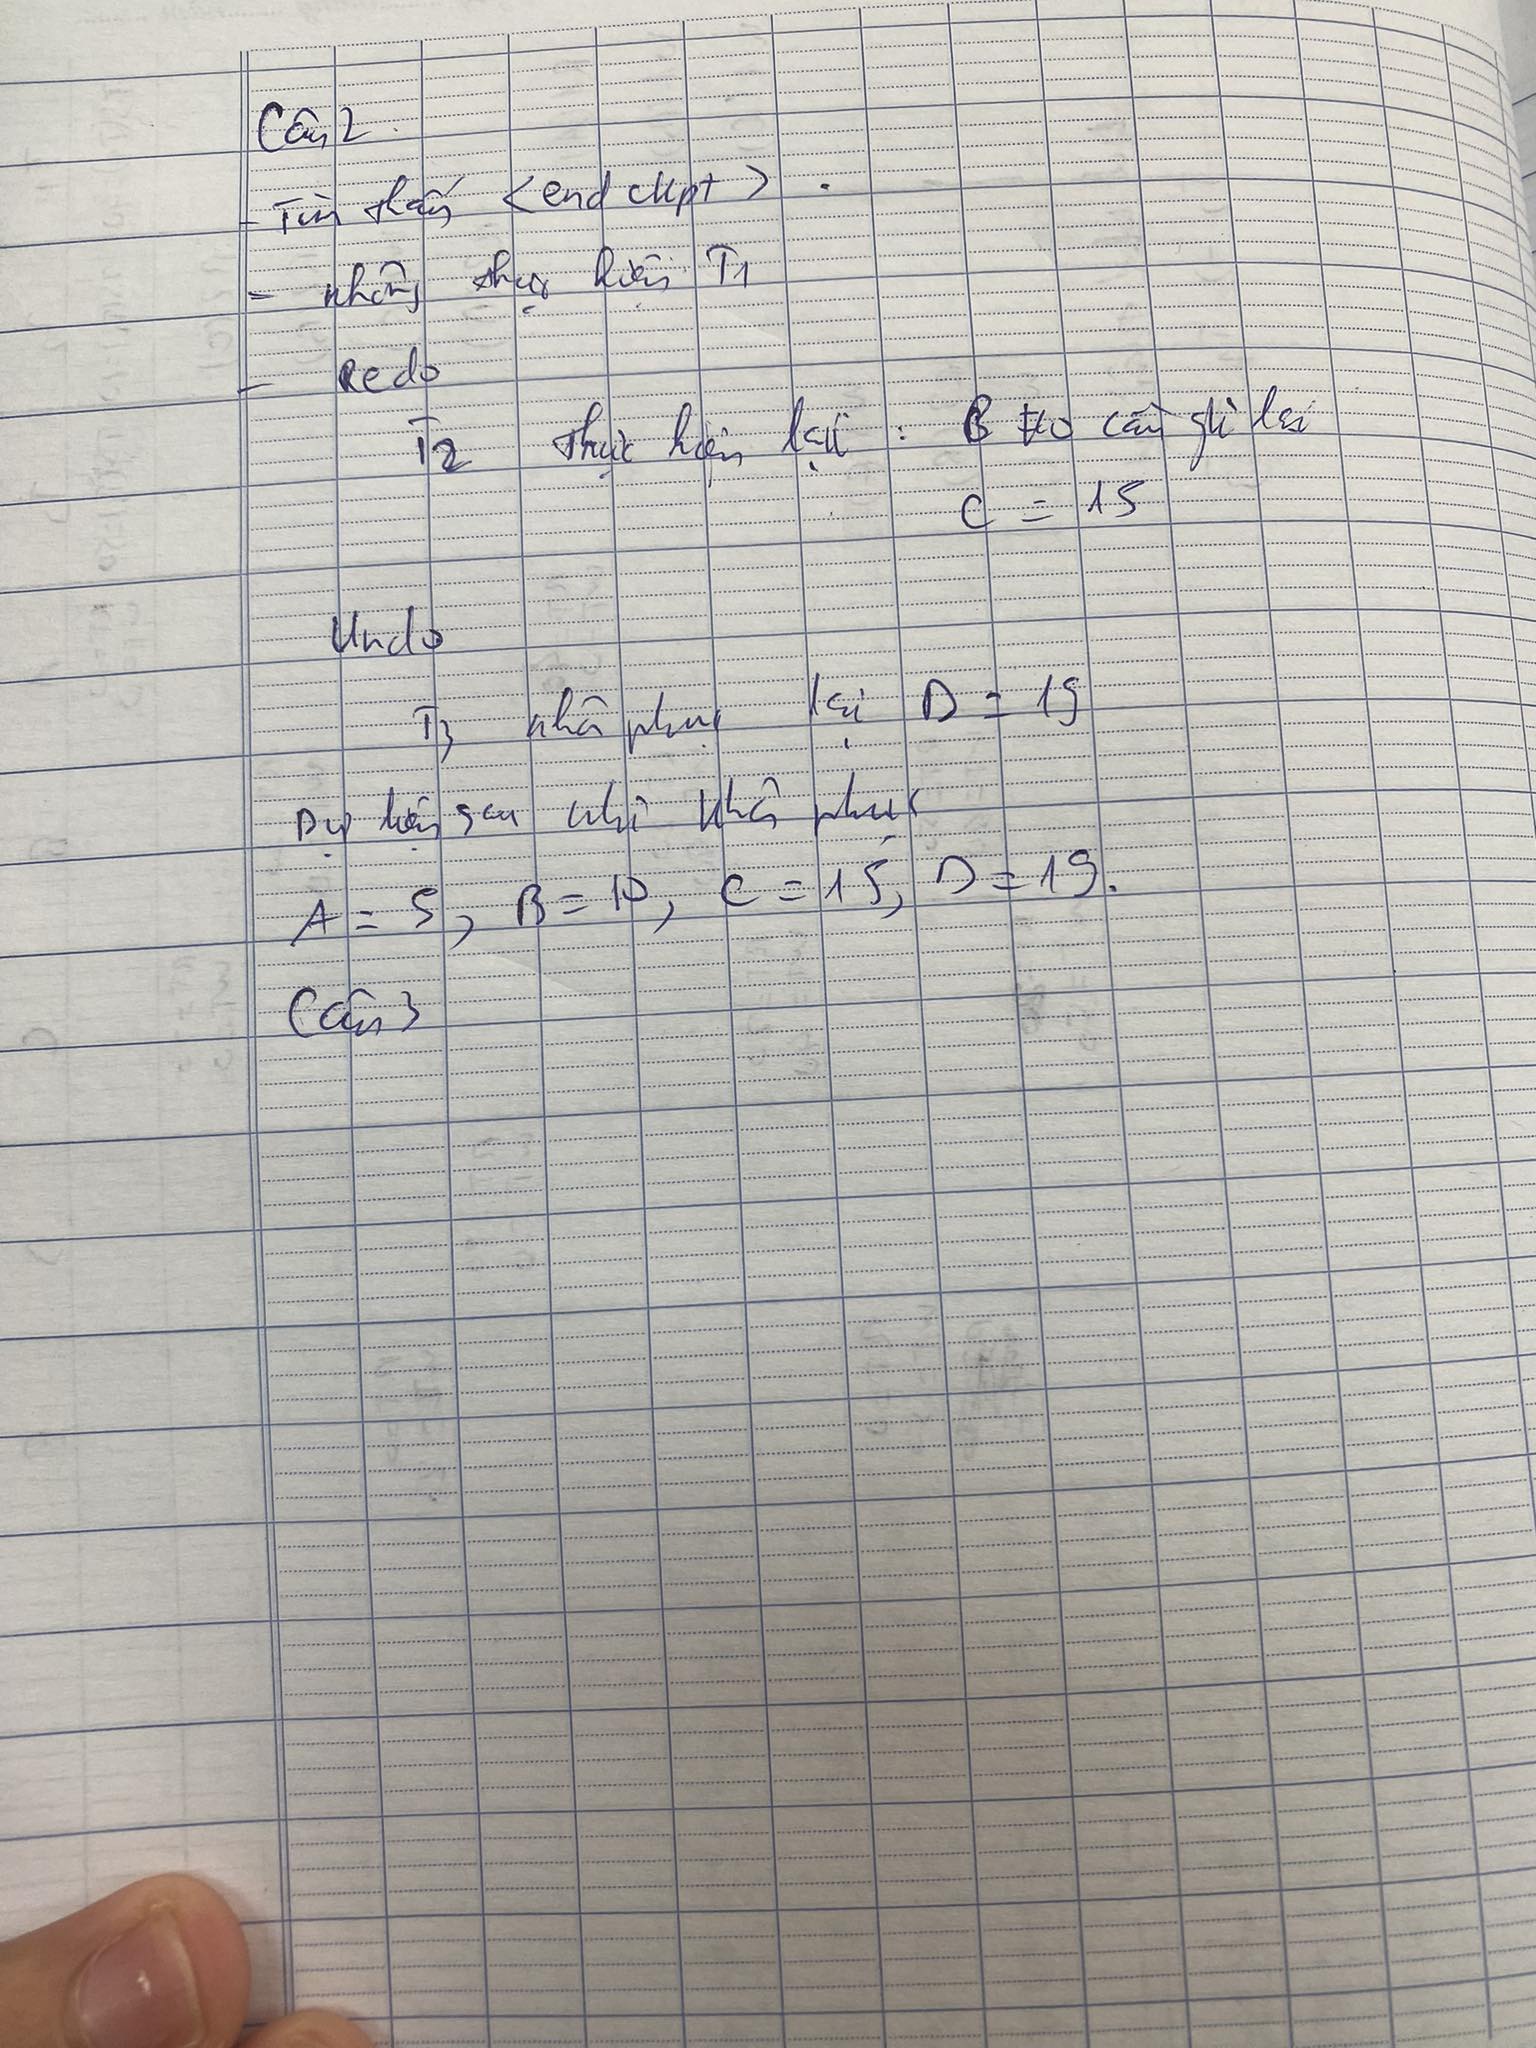 Câu 2.
- Tìm thấy <end ckpt>.
- không thực hiện T1
- Redo
T2 thực hiện lại : B ko cần ghi lại
C = 15
Undo
T3 khôi phục lại D = 19
Dự kiện sau khi khôi phục
A = 5, B = 10, C = 15, D = 19.
Câu 3